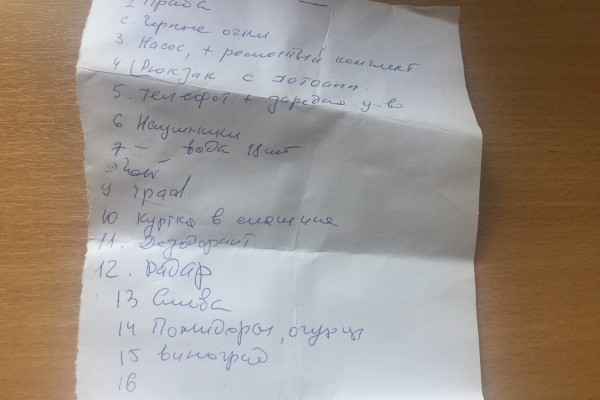 1 Прада
2. Черные очки
3. Насос, + ремонтный комплект
4 (Рюкзак с
5. Телефон + зарядно у-во
6 Наушники
7 – вода 18 шт
Чай
9
10 куртка в
11. Дезодорант
12. Радар
13 Слива
14 Помидоры, огурцы
15 виноград
16